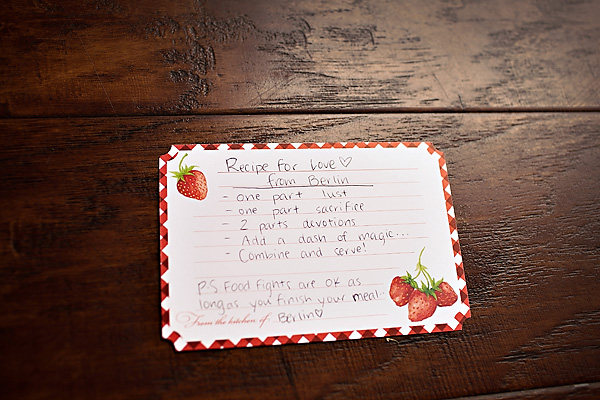 Recipe for Love ♡
from Berlin
- one part lust
- one part sacrifice
- 2 parts devotions
- Add a dash of magic...
- Combine and serve!
P.S. Food Fights are OK as
long as you finish your meal.
From the kitchen of Berlin ♡